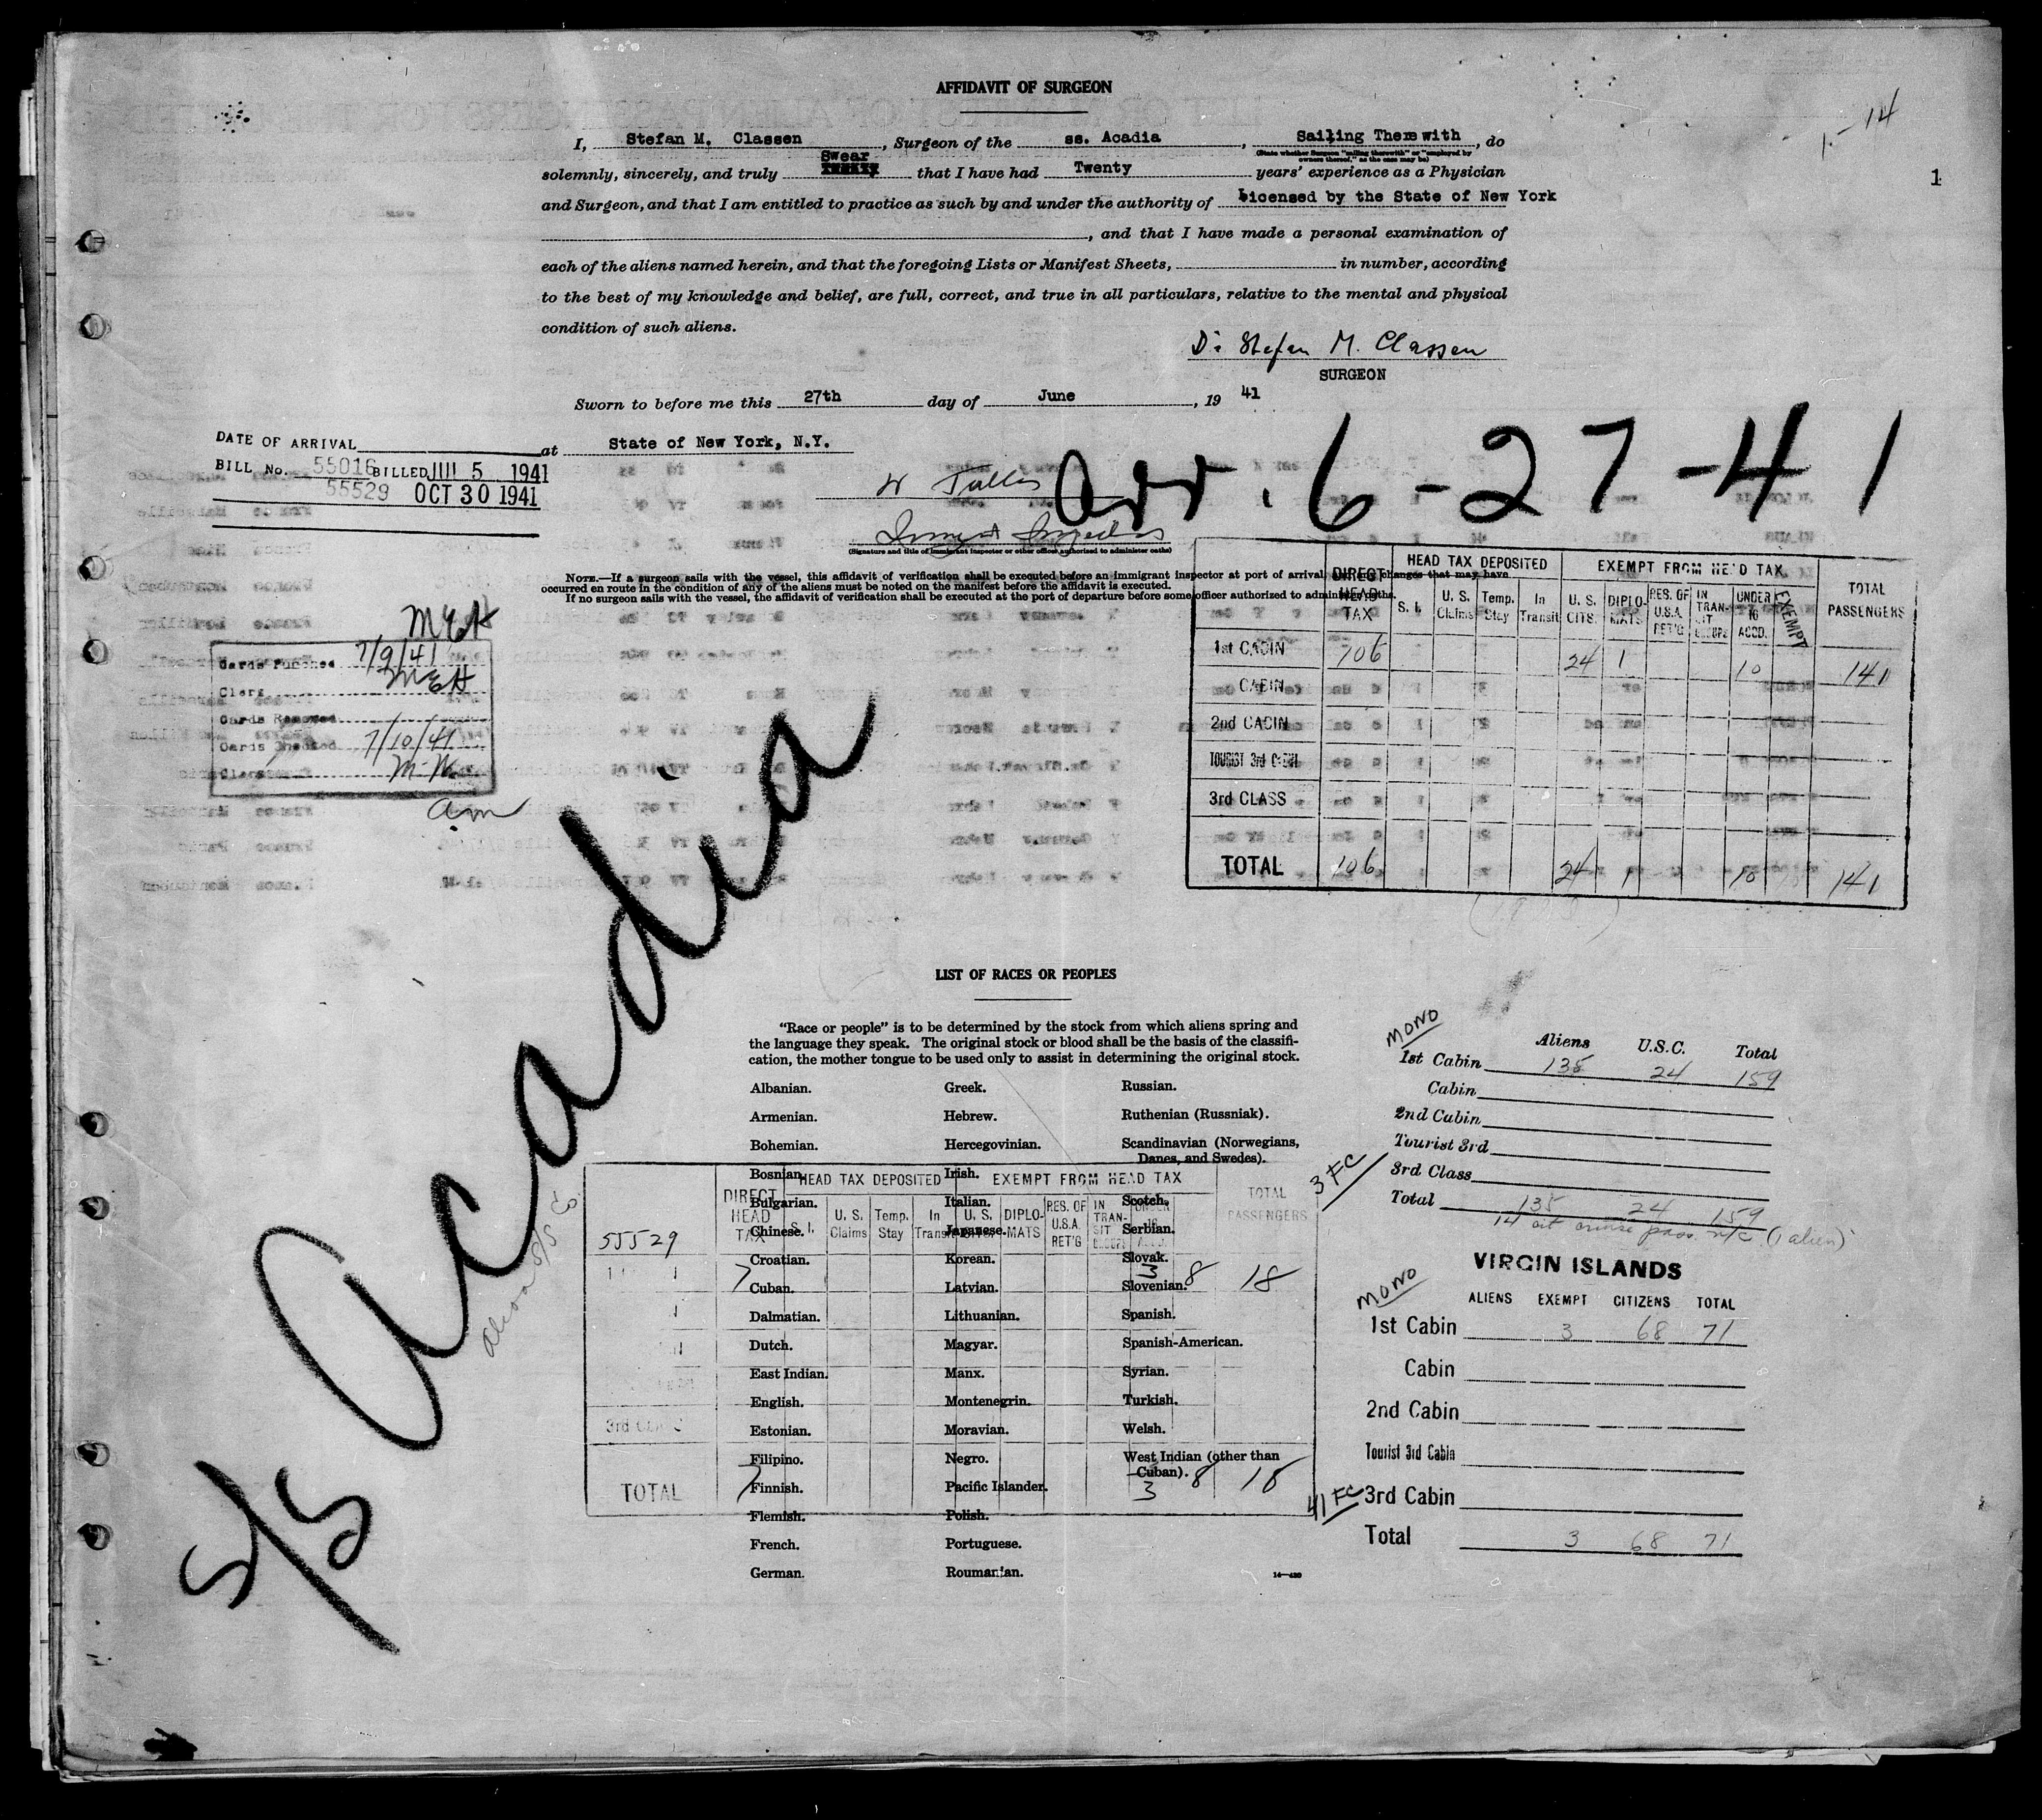 AFFIDAVIT OF SURGEON
1-14
1
I, Stefan M. Classen, Surgeon of the ss. Acadia, Sailing Therewith, do
(State whether Surgeon "sailing therewith" or "employed by owners thereof," as the case may be)
solemnly, sincerely, and truly Swear that I have had Twenty years' experience as a Physician
and Surgeon, and that I am entitled to practice as such by and under the authority of Licensed by the State of New York
, and that I have made a personal examination of
each of the aliens named herein, and that the foregoing Lists or Manifest Sheets, in number, according
to the best of my knowledge and belief, are full, correct, and true in all particulars, relative to the mental and physical
condition of such aliens.
Dr Stefan M. Classen
SURGEON
Sworn to before me this 27th day of June, 19 41
at State of New York, N.Y.
DATE OF ARRIVAL
BILL No. 55016 BILLED JUL 5 1941
55529 OCT 30 1941
Arr. 6-27-41
Immgt Inspector
(Signature and title of immigrant inspector or other officer authorized to administer oaths)
NOTE.—If a surgeon sails with the vessel, this affidavit of verification shall be executed before an immigrant inspector at port of arrival, changes that may have
occurred en route in the condition of any of the aliens must be noted on the manifest before the affidavit is executed.
If no surgeon sails with the vessel, the affidavit of verification shall be executed at the port of departure before some officer authorized to administer oaths.
MEH
Cards Punched 7/9/41
Clerk MEH
Cards Removed
Cards Checked 7/10/41
Clerk M.W.
am
DIRECT HEAD TAX HEAD TAX DEPOSITED EXEMPT FROM HEAD TAX TOTAL PASSENGERS
S. I. U. S. Claims Temp. Stay In Transit U. S. CITS. DIPLOMATS RES. OF U.S.A. RET'G IN TRANSIT GROUPS UNDER 16 ACCD. EXEMPT
1st CABIN 106 24 1 10 141
CABIN
2nd CABIN
TOURIST 3rd CABIN
3rd CLASS
TOTAL 106 24 1 10 141
S/S Acadia
LIST OF RACES OR PEOPLES
"Race or people" is to be determined by the stock from which aliens spring and
the language they speak. The original stock or blood shall be the basis of the classifi-
cation, the mother tongue to be used only to assist in determining the original stock.
Albanian.
Armenian.
Bohemian.
Bosnian.
Bulgarian.
Chinese.
Croatian.
Cuban.
Dalmatian.
Dutch.
East Indian.
English.
Estonian.
Filipino.
Finnish.
Flemish.
French.
German.
Greek.
Hebrew.
Hercegovinian.
Irish.
Italian.
Japanese.
Korean.
Latvian.
Lithuanian.
Magyar.
Manx.
Montenegrin.
Moravian.
Negro.
Pacific Islander.
Polish.
Portuguese.
Roumanian.
Russian.
Ruthenian (Russniak).
Scandinavian (Norwegians,
Danes, and Swedes).
Scotch.
Serbian.
Slovak.
Slovenian.
Spanish.
Spanish-American.
Syrian.
Turkish.
Welsh.
West Indian (other than
Cuban).
14—430
DIRECT HEAD TAX HEAD TAX DEPOSITED EXEMPT FROM HEAD TAX TOTAL PASSENGERS
S. I. U. S. Claims Temp. Stay In Transit U. S. DIPLOMATS RES. OF U.S.A. RET'G IN TRANSIT GROUPS UNDER 16
55529
7 3 8 18
3rd CLASS
TOTAL 7 3 8 18
MONO
Aliens U.S.C. Total
1st Cabin 135 24 159
Cabin
2nd Cabin
Tourist 3rd
3rd Class
3 FC
Total 135 24 159
14 cit cruise pass. n/c (1 alien)
VIRGIN ISLANDS
MONO
ALIENS EXEMPT CITIZENS TOTAL
1st Cabin 3 68 71
Cabin
2nd Cabin
Tourist 3rd Cabin
41 FC
3rd Cabin
Total 3 68 71